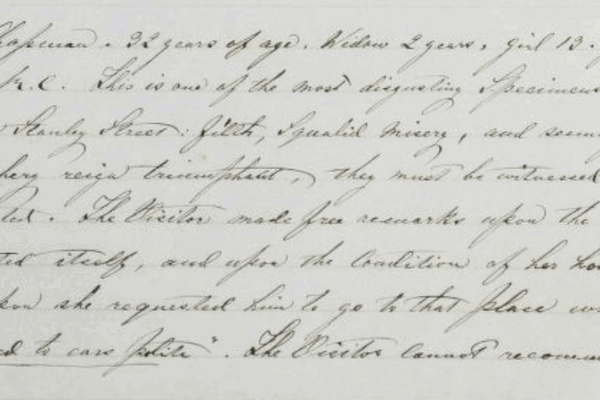 Chapman. 32 years of age. Widow 2 years, girl 13.
R.C. This is one of the most disgusting Specimens
Stanley Street: filth, Squalid misery, and
reign triumphant, they must be witnessed
The Visitor made free remarks upon the
itself, and upon the Condition of her
she requested him to go to that place
to cars polite". The Visitor cannot